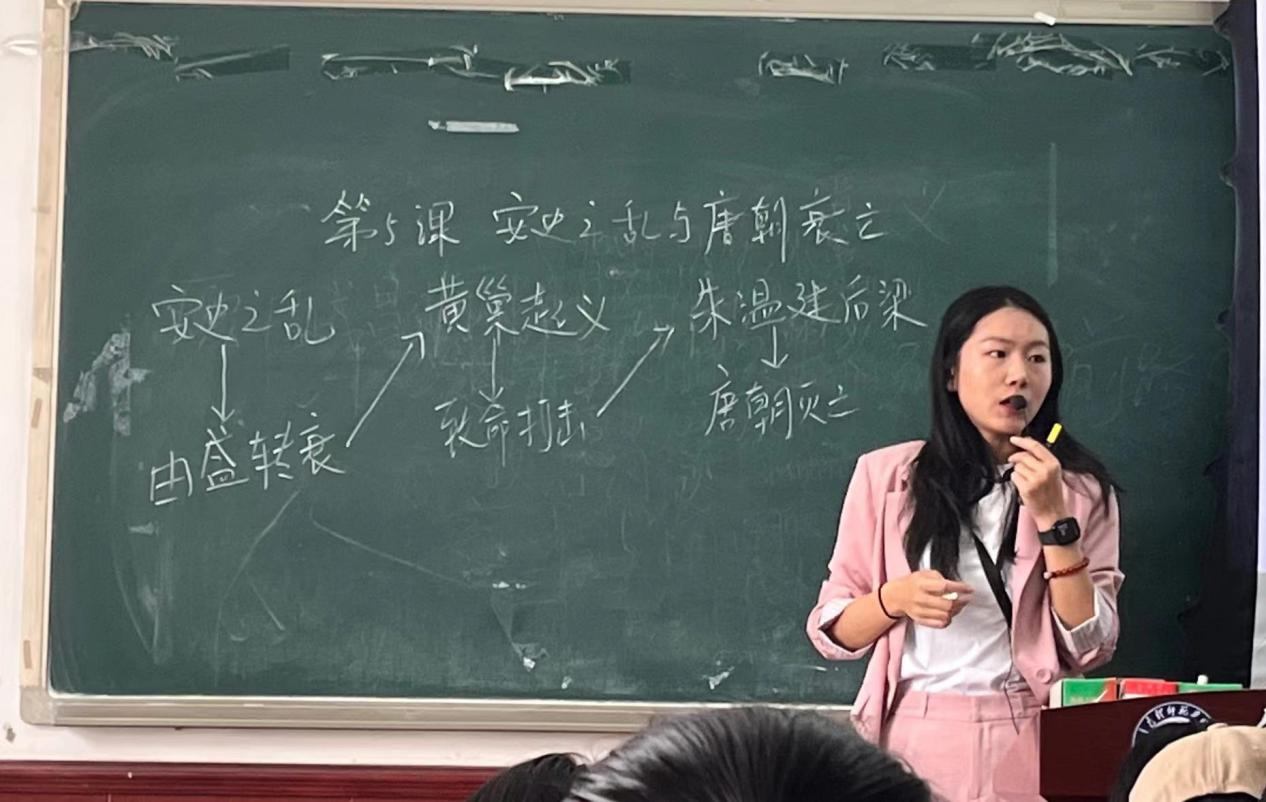 第5课 安史之乱与唐朝衰亡
安史之乱 黄巢起义 朱温建后梁
由盛转衰 致命打击 唐朝灭亡